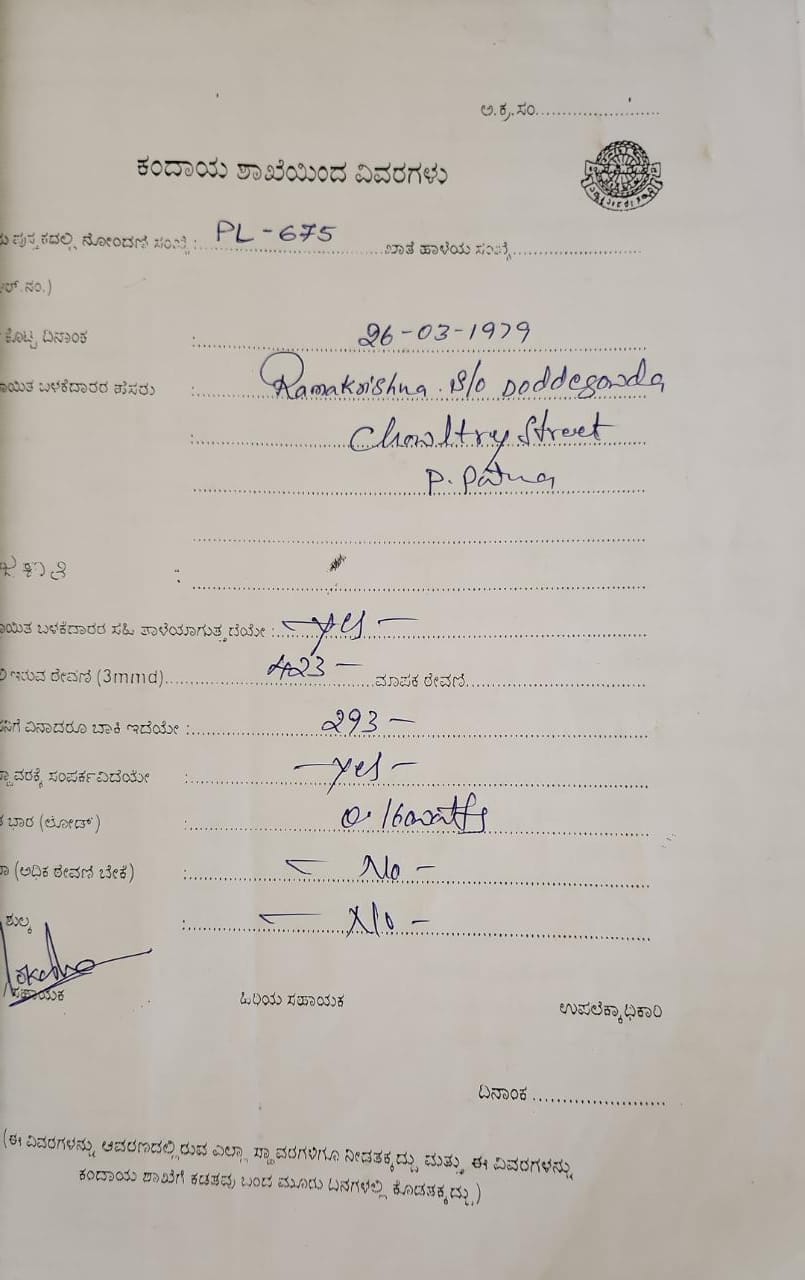 ಅ.ಕ್ರ.ಸಂ......................
ಕಂದಾಯ ಶಾಖೆಯಿಂದ ವಿವರಗಳು
ಪುಸ್ತಕದಲ್ಲಿ ನೋಂದಣಿ ಸಂಖ್ಯೆ : PL-675 ಖಾತೆ ಹಾಳೆಯ ಸಂಖ್ಯೆ......................
ನಂ.)
ಕೊಟ್ಟ ದಿನಾಂಕ : 26-03-1979
ಬಳಕೆದಾರರ ಹೆಸರು : Ramakrishna. S/o Doddegowda
: Chowltry Street
P. Patna
ಜಕಾತಿ :
ಬಳಕೆದಾರರ ಸಹಿ ತಾಳೆಯಾಗುತ್ತದೆಯೇ : – yes –
ಇರುವ ಠೇವಣಿ (3mmd) 423 – ಮಾಪಕ ಠೇವಣಿ......................
ಏನಾದರೂ ಬಾಕಿ ಇದೆಯೇ : 293 –
ಸಂಪರ್ಕವಿದೆಯೇ : – yes –
ಭಾರ (ಲೋಡ್) : 0.160watts
(ಅಧಿಕ ಠೇವಣಿ ಬೇಕೆ) : – No –
ಶುಲ್ಕ : – No –
ಸಹಾಯಕ ಹಿರಿಯ ಸಹಾಯಕ ಉಪಲೆಕ್ಕಾಧಿಕಾರಿ
ದಿನಾಂಕ ......................
(ಈ ವಿವರಗಳನ್ನು ಆವರಣದಲ್ಲಿರುವ ಎಲ್ಲಾ ಸ್ಥಾವರಗಳಿಗೂ ನೀಡತಕ್ಕದ್ದು ಮತ್ತು ಈ ವಿವರಗಳನ್ನು
ಕಂದಾಯ ಶಾಖೆಗೆ ಕಡತವು ಬಂದ ಮೂರು ದಿನಗಳಲ್ಲಿ ಕೊಡತಕ್ಕದ್ದು)